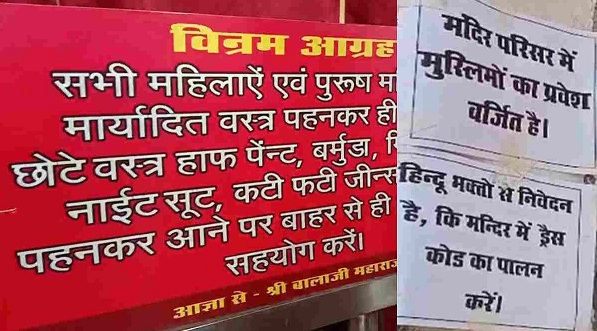 विनम्र आग्रह
सभी महिलाऐं एवं पुरूष
मार्यादित वस्त्र पहनकर ही
छोटे वस्त्र हाफ पेंन्ट, बर्मुडा,
नाईट सूट, कटी फटी जीन्स
पहनकर आने पर बाहर से ही
सहयोग करें।
आज्ञा से - श्री बालाजी महाराज
मंदिर परिसर में
मुस्लिमों का प्रवेश
वर्जित है।
हिन्दू भक्तों से निवेदन
है, कि मन्दिर में ड्रैस
कोड का पालन
करें।